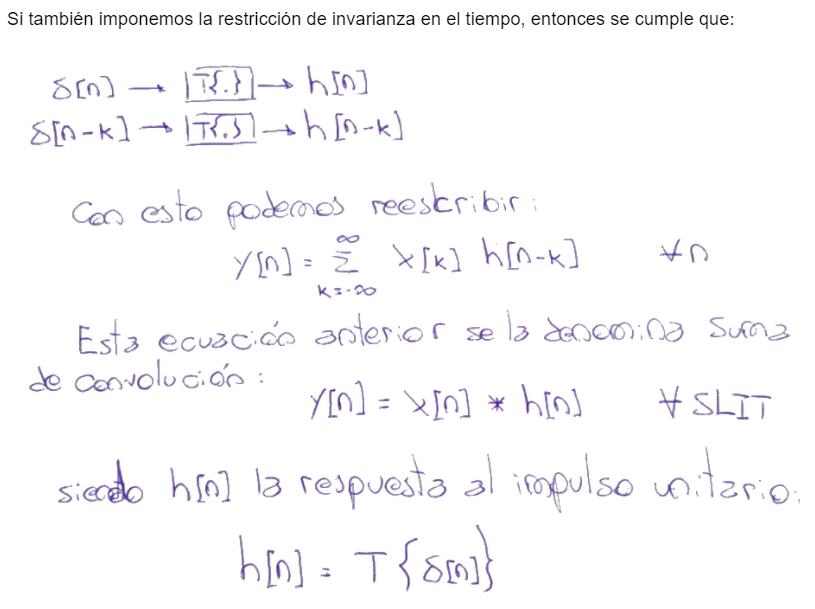 Si también imponemos la restricción de invarianza en el tiempo, entonces se cumple que:
δ[n] → |T{.}| → h[n]
δ[n-k] → |T{.}| → h[n-k]
Con esto podemos reescribir:
y[n] = ∑_{k=-∞}^{∞} x[k] h[n-k] ∀n
Esta ecuación anterior se la denomina suma
de convolución:
y[n] = x[n] * h[n] ∀ SLIT
siendo h[n] la respuesta al impulso unitario:
h[n] = T{δ[n]}